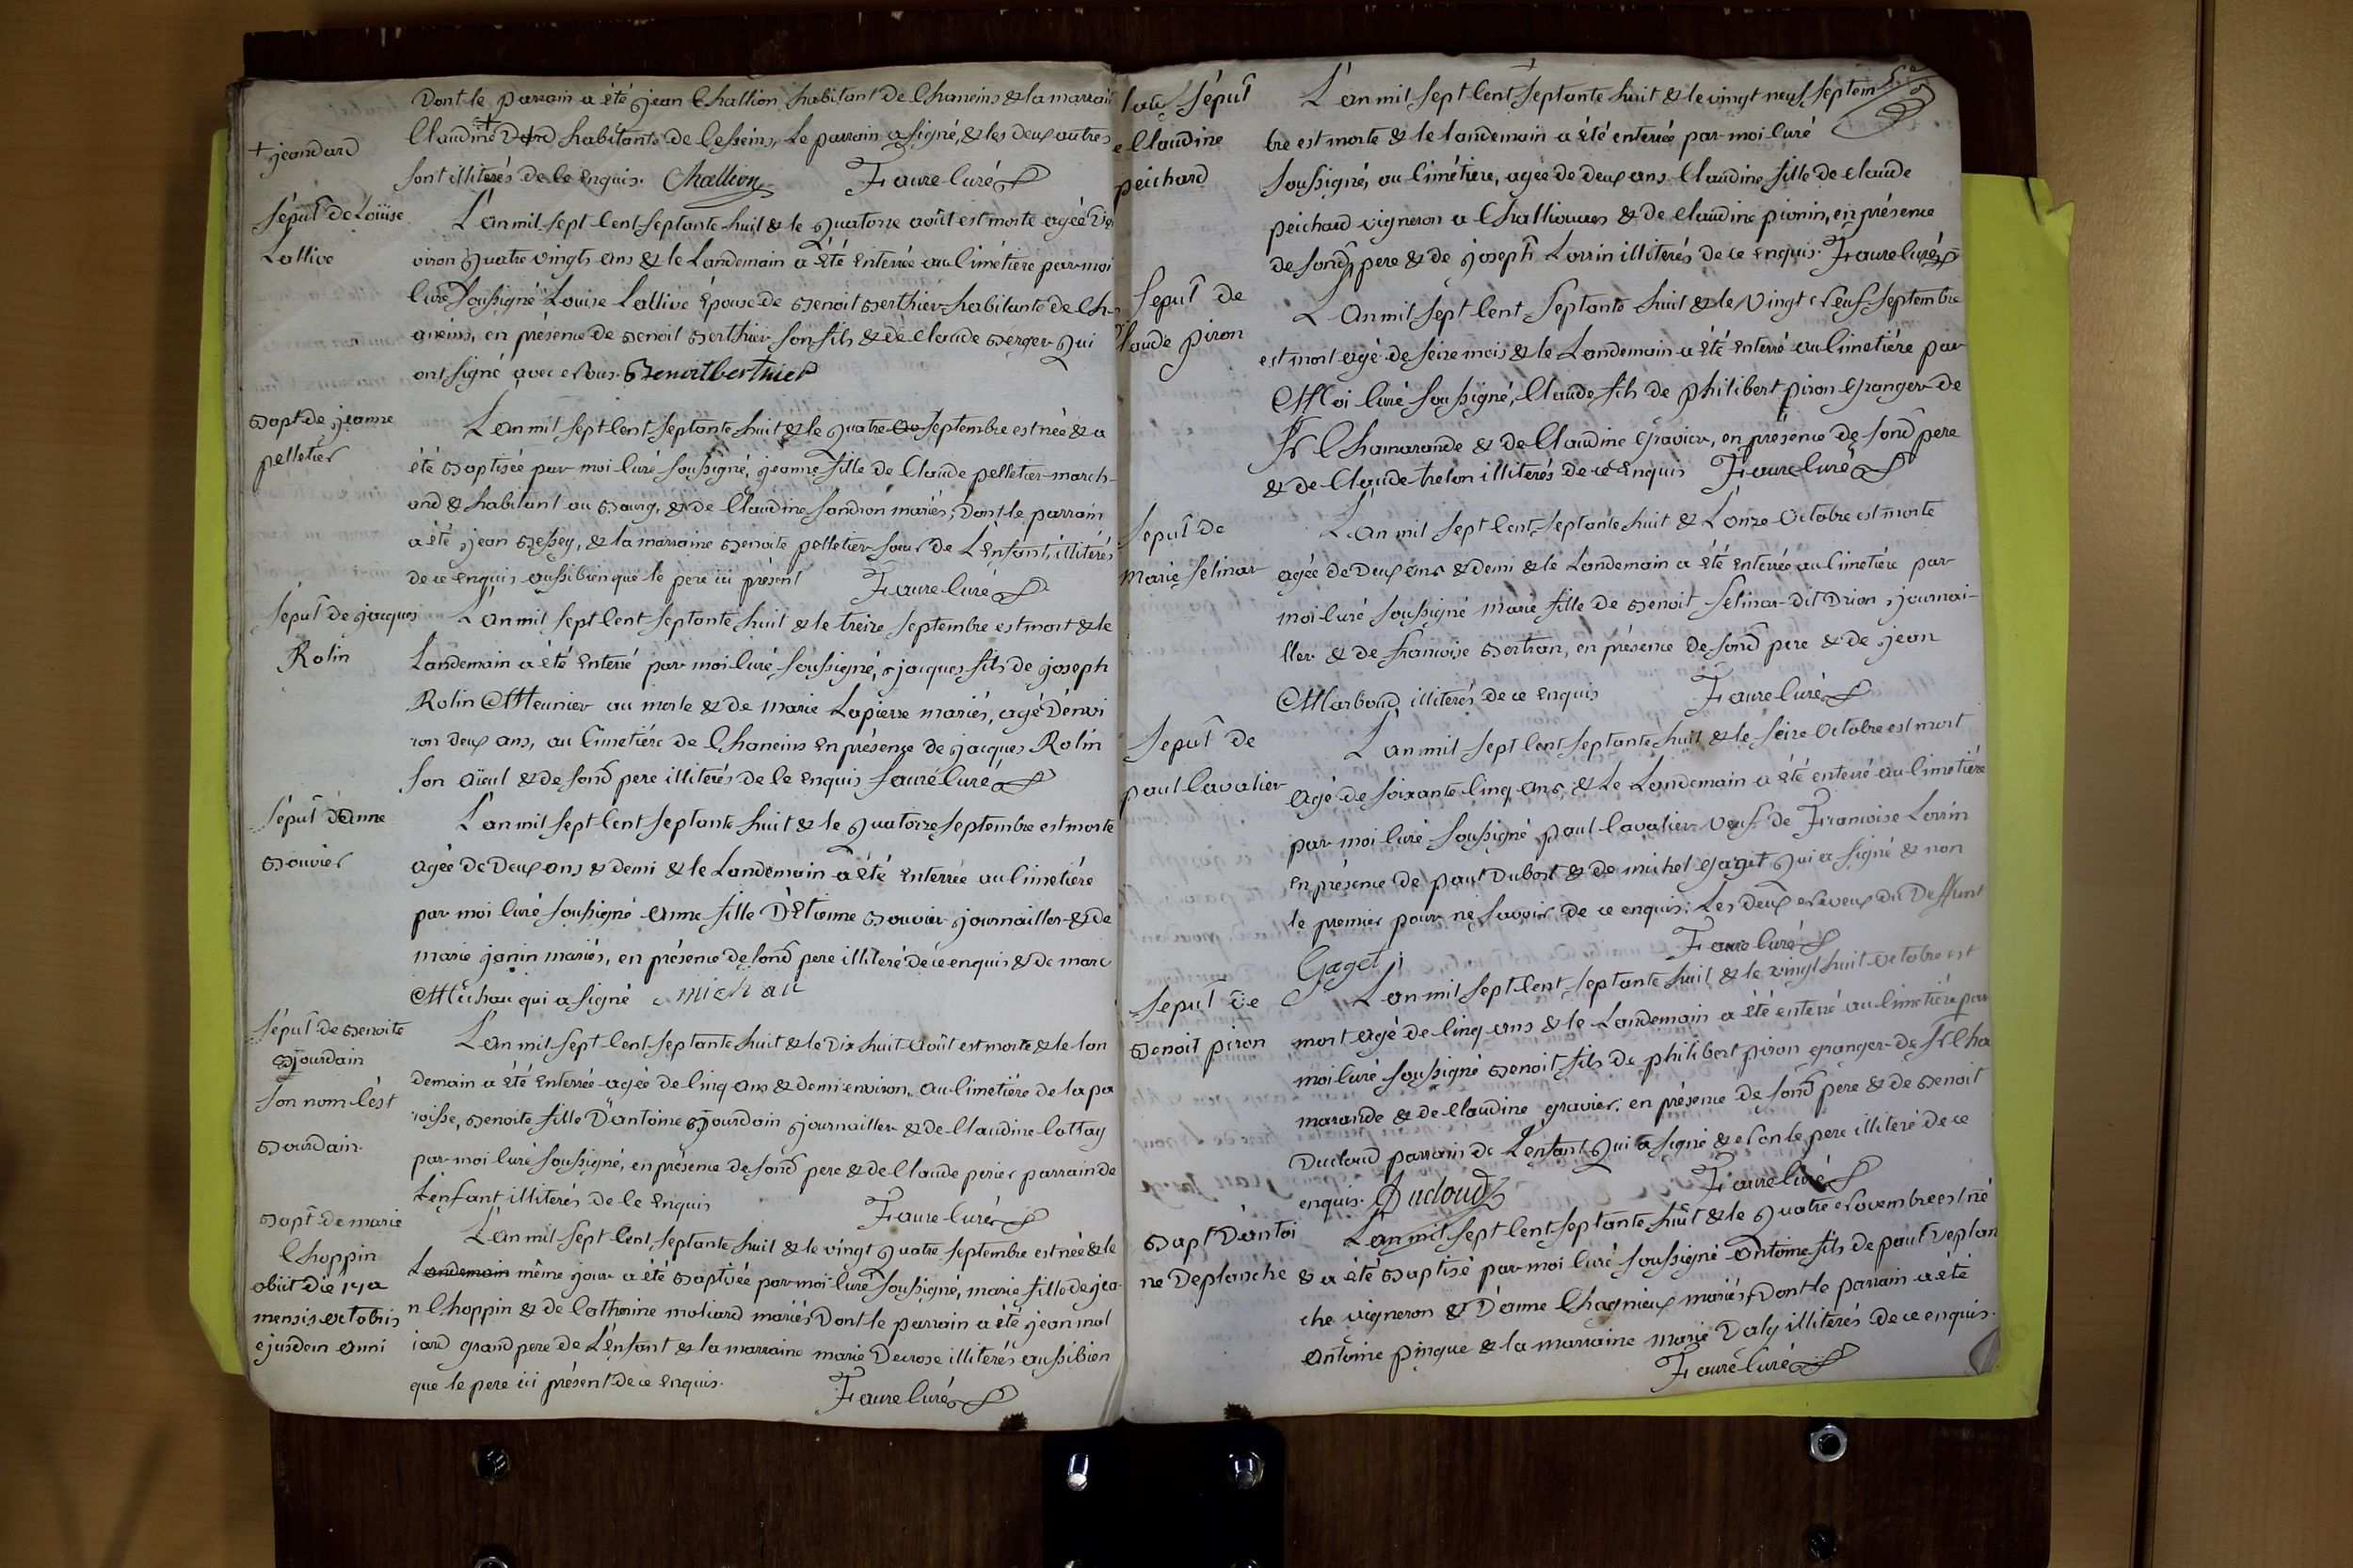 Dont le parrain a été jean Challion habitant de Chaneins & la marrain
+ jeandard
Claudine + habitante de Cesseins, Le parrain a signé, & les deux autres
sont illiterés de ce enquis. Challion Faure Curé
Sépult de Loüise
Lallive
L'an mil sept cent septante huit & le quatorse août est morte agée d'en
viron quatre vingts ans & le Landemain a été enterrée au Cimétiere par moi
Curé soussigné Louise Lallive épouse de Benoit Berthier habitante de Ch-
aneins, en présence de Benoit Berthier son fils & de Claude Berger qui
ont signé avec Nous. Benoit berthier
Bapt de jeanne
pelletier
L'an mil sept cent septante huit & le quatre septembre est née & a
été Baptisée par moi Curé soussigné, jeanne fille de Claude pelletier march-
and & habitant au Bourg, & de Claudine sandron mariés, Dont le parrain
a été jean Bessey, & la marraine Benoite pelletier sœur de L'enfant, illitérés
de ce enquis aussi bien que le pere ici présent Faure Curé
Sépult de jacques
Rolin
L'an mil sept cent septante huit & le treize septembre est mort & le
Landemain a été Enterré par moi Curé soussigné, jacques fils de joseph
Rolin Meunier au morle & de Marie Lapierre mariés, agé d'envi
ron deux ans, au Cimetiére de Chaneins en présence de jacques Rolin
son aïeul & de sond pere illiterés de ce enquis Faure Curé
Sépult d'Anne
Bouvier
L'an mil sept cent septante huit & le quatorze septembre est morte
agée de Deux ans & demi & le Landemain a été Enterrée au Cimetiére
par moi Curé soussigné Anne fille D'Etienne Bouvier journaillier & de
marie janin mariés, en présence de sond pere illiteré de ce enquis & de marc
Michau qui a signé michau
Sépult de Benoite
Bjourdain
son nom c'est
Bourdain.
L'an mil sept cent septante huit & le Dix huit Août est morte & le lan
demain a été Enterrée agée de cinq ans & demi environ, au Cimetiére de la pa
roisse, Benoite fille D'antoine Bjourdain journaillier & de Claudine Cottay
par moi Curé soussigné, en présence de sond pere & de Claude perier parrain de
L'enfant illiterés de ce Enquis Faure Curé
Bapt de marie
Choppin
obiit die 17a
mensis octobris
ejusdem anni
L'an mil sept cent septante huit & le vingt quatre septembre est née & le
Landemain même jour a été Baptisée par moi Curé soussigné, marie fille de jea-
n Choppin & de Catherine moliard mariés Dont le parrain a été jean mol
iard grand pere de L'enfant & la marraine marie Decrose illiterés aussi bien
que le pere ici présent de ce enquis. Faure Curé
Sépult
e Claudine
peichard
L'an mil sept cent septante huit & le vingt neuf septem
bre est morte & le landemain a été enterrée par moi Curé
soussigné, au Cimétiere, agée de deux ans Claudine fille de claude
peichard vigneron a Challiouures & de claudine pionin, en présence
de sond pere & de joseph Lorrin illiterés de ce enquis. Faure Curé
Sepult de
laude piron
L'An mil sept cent septante huit & le vingt Neuf septembre
est mort agé de seize mois & le Landemain a été enterré au Cimetiére par
Moi Curé soussigné, Claude fils de philibert piron Granger de
Mr Chamarande & de Claudine Gravier, en présence de sond pere
& de Claude trelon illiterés de ce enquis Faure Curé
Sepult de
Marie selinar
L'an mil sept cent septante huit & L'onze Octobre est morte
agée de Deux ans & demi & le Landemain a été Enterrée au Cimetiére par
moi Curé soussigné Marie fille de Benoit selinar dit Drion journai-
llier & de françoise Bertran, en présence de sond pere & de jean
Marboud illiterés de ce enquis Faure Curé
Sepult de
paul Cavalier
L'an mil sept cent septante huit & le seize Octobre est mort
Agé de soixante cinq ans & Le Landemain a été enterré au Cimetiére
par moi Curé soussigné paul Cavalier veuf de Francoise Lorrin
en présence de paul Dubost & de michel gaget qui a signé & non
le premier pour ne savoir de ce enquis: Les deux neveux du Deffunt
Gaget Faure Curé
Sepult de
Benoit piron
L'an mil sept cent septante huit & le vingt huit octobre est
mort agé de cinq ans & le Landemain a été enterré au Cimetiére par
moi Curé soussigné Benoit fils de philibert piron granger de Mr Cha
marande & de Claudine gravier: en présence de sond pere & de Benoit
Ducloud parrain de L'enfant qui a signé & Non le pere illiteré de ce
enquis. Ducloud Faure Curé
Bapt D'antoi
ne Deplanche
L'an mil sept cent septante huit & le quatre Novembre est né
& a été Baptisé par moi Curé soussigné Antoine fils de paul Deplan
che vigneron & D'anne Chagnieux mariés, Dont le parrain a été
Antoine pinque & la marraine Marie Daly illiterés de ce enquis.
Faure Curé